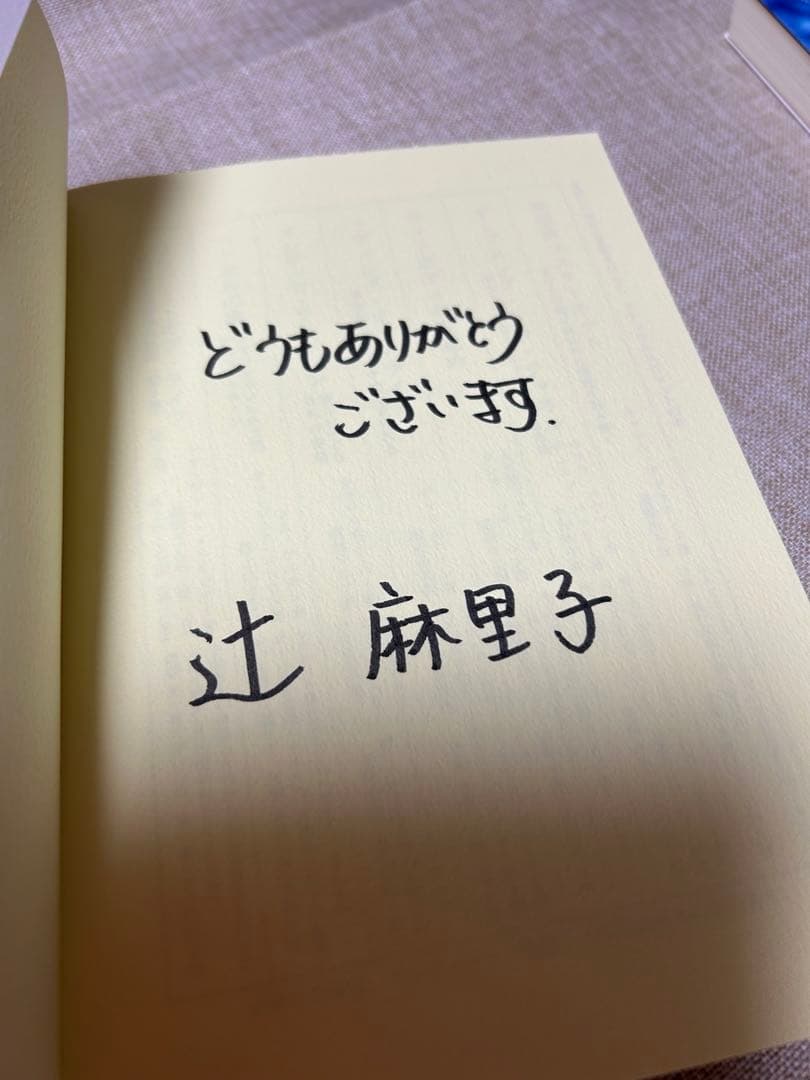 どうもありがとう
ございます.
辻 麻里子